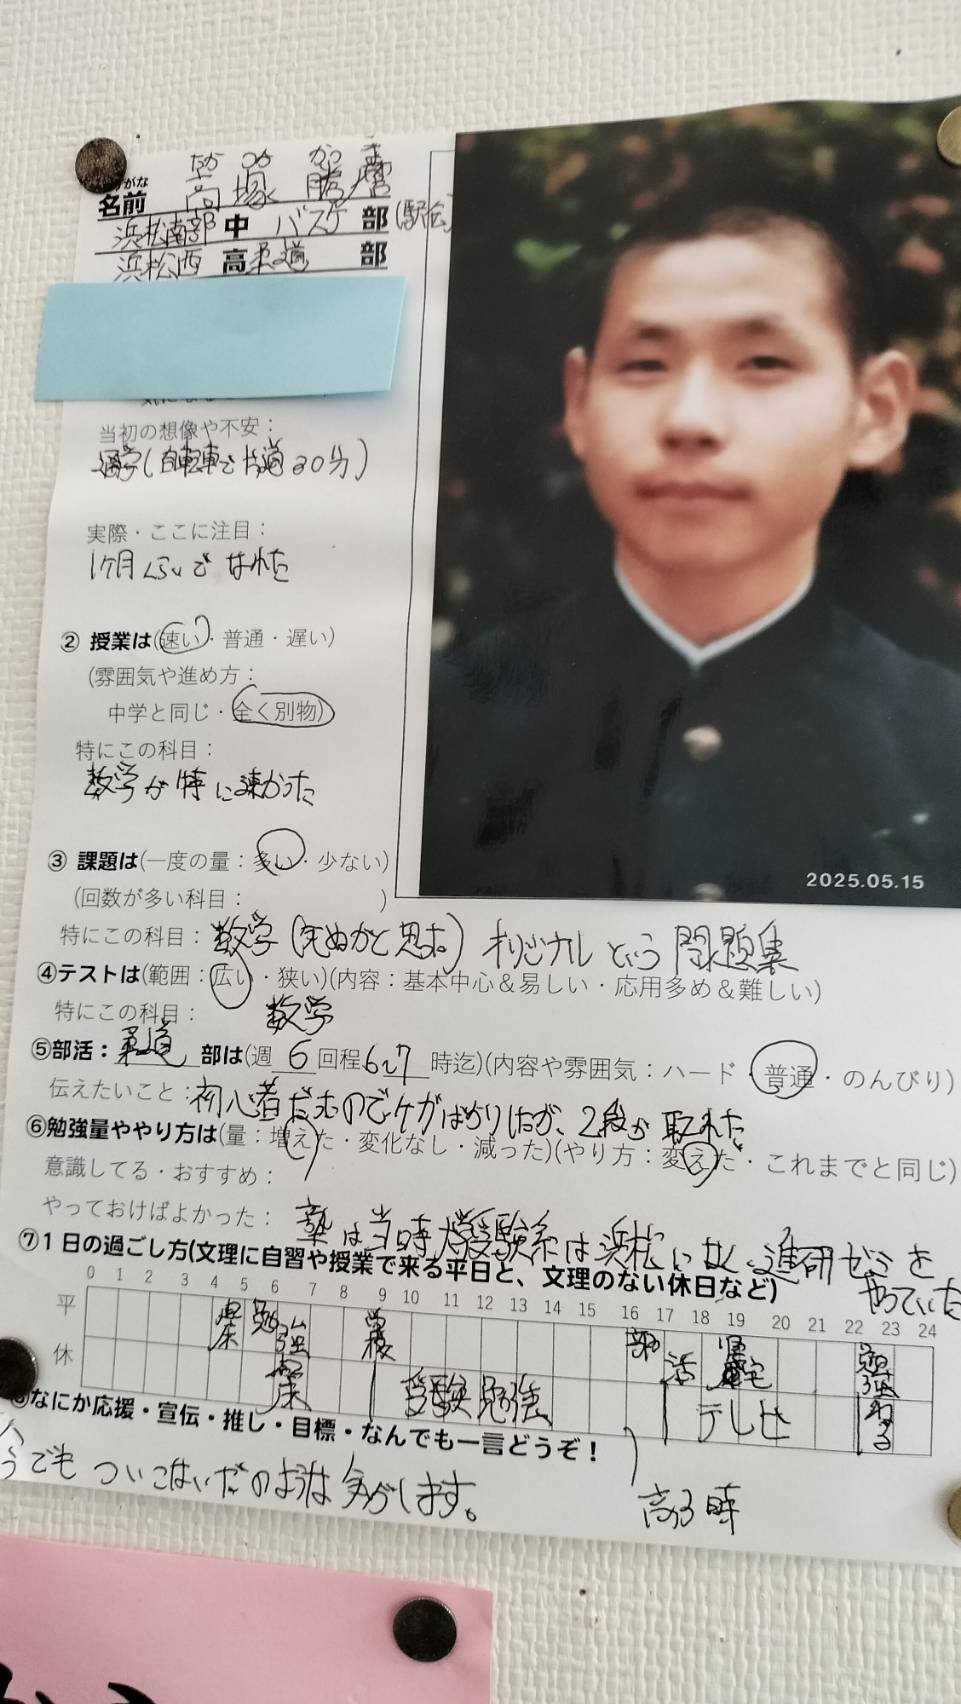 たか つか かつ ま
ふりがな
名前 高塚 勝麿
浜松南部 中 バスケ 部(駅伝)
浜松西 高 柔道 部
当初の想像や不安：
通学(自転車で片道30分)
実際・ここに注目：
1ヶ月くらいでなれた
② 授業は(速い・普通・遅い)
(雰囲気や進め方：
中学と同じ・全く別物)
特にこの科目：
数学が特に速かった
③ 課題は(一度の量：多い・少ない)
(回数が多い科目： )
特にこの科目：数学(死ぬかと思た) オリジナルという問題集
④テストは(範囲：広い・狭い)(内容：基本中心＆易しい・応用多め＆難しい)
特にこの科目： 数学
⑤部活：柔道 部は(週 6 回程 6~7 時迄)(内容や雰囲気：ハード・普通・のんびり)
伝えたいこと：初心者だたのでケガばかりしたが、2段が取れた
⑥勉強量ややり方は(量：増えた・変化なし・減った)(やり方：変えた・これまでと同じ)
意識してる・おすすめ：
やっておけばよかった： 塾は当時大学受験系は浜松になく、進研ゼミをやっていた
⑦1日の過ごし方(文理に自習や授業で来る平日と、文理のない休日など)
0 1 2 3 4 5 6 7 8 9 10 11 12 13 14 15 16 17 18 19 20 21 22 23 24
平 起床 勉強 学校 部活 帰宅 勉強
休 起床 受験勉強 テレビ ねる
なにか応援・宣伝・推し・目標・なんでも一言どうぞ！
今でもついこないだのような気がします。
高3時
2025.05.15